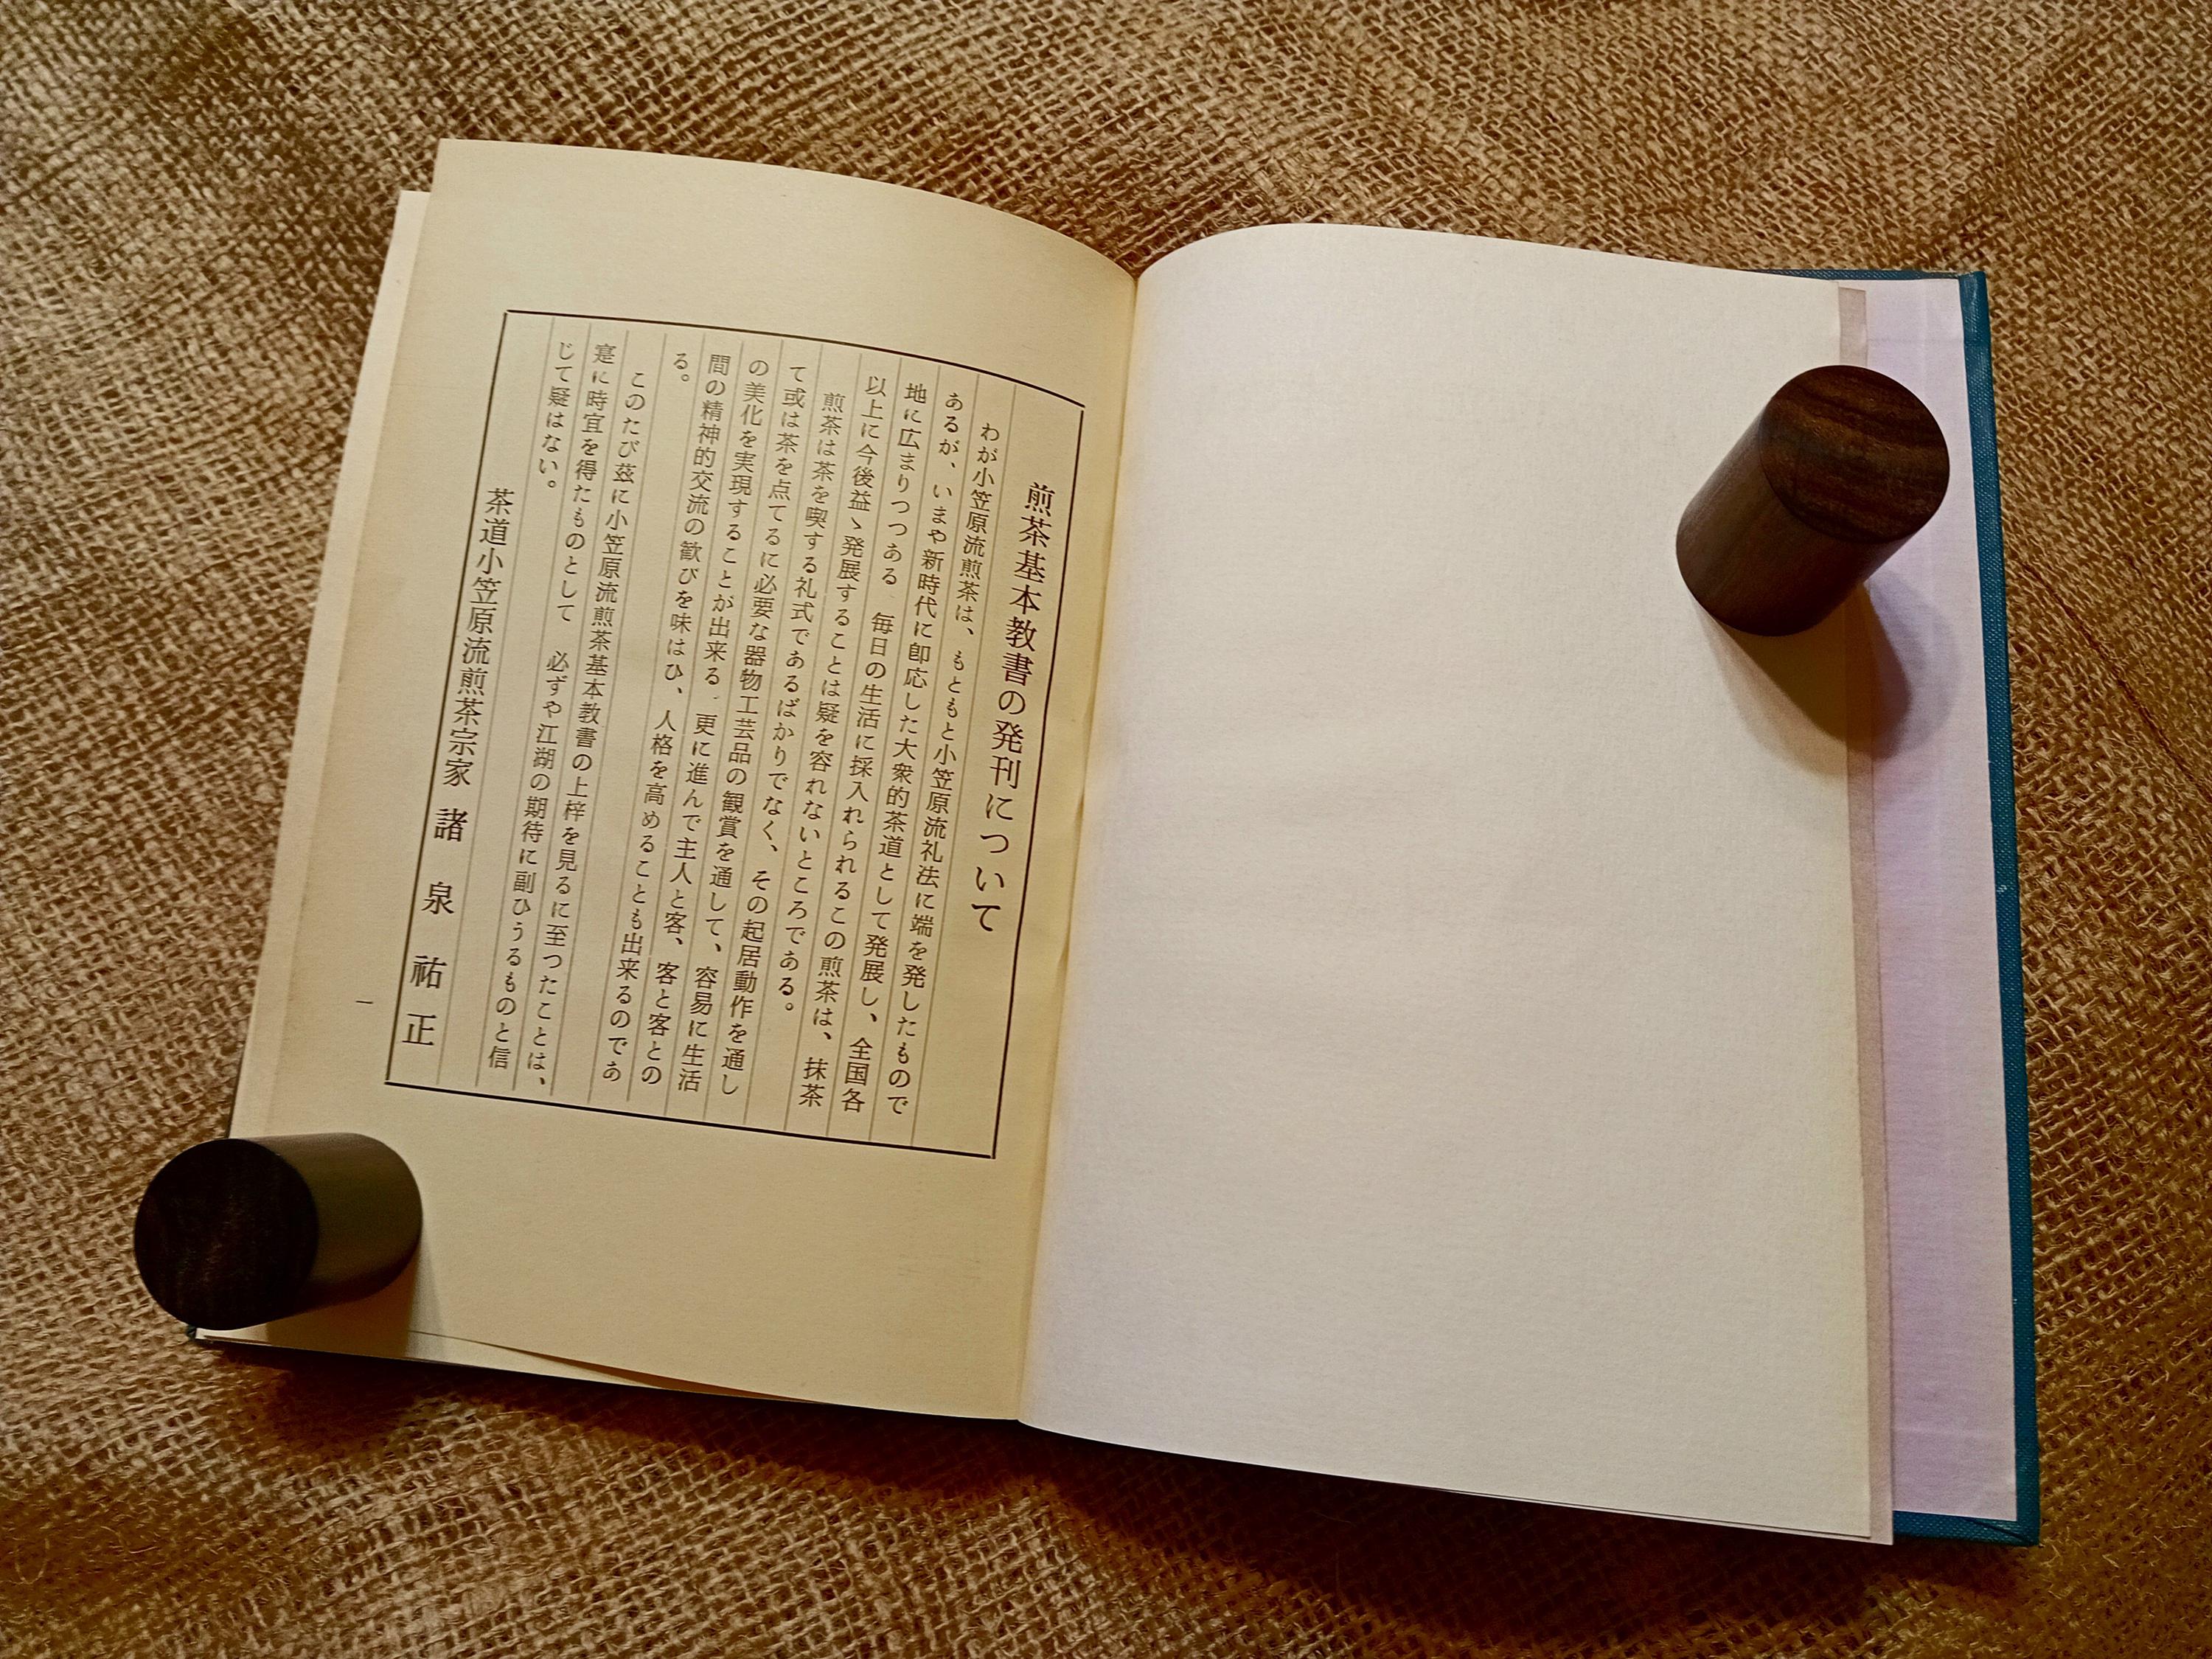 煎茶基本教書の発刊について
わが小笠原流煎茶は、もともと小笠原流礼法に端を発したもので
あるが、いまや新時代に卽応した大衆的茶道として発展し、全国各
地に広まりつつある 毎日の生活に採入れられるこの煎茶は、抹茶
以上に今後益ゝ発展することは疑を容れないところである。
煎茶は茶を喫する礼式であるばかりでなく、その起居動作を通し
て或は茶を点てるに必要な器物工芸品の観賞を通して、容易に生活
の美化を実現することが出来る。更に進んで主人と客、客と客との
間の精神的交流の歓びを味はひ、人格を高めることも出来るのであ
る。
このたび茲に小笠原流煎茶基本教書の上梓を見るに至つたことは、
寔に時宜を得たものとして 必ずや江湖の期待に副ひうるものと信
じて疑はない。
茶道小笠原流煎茶宗家 諸泉祐正
一